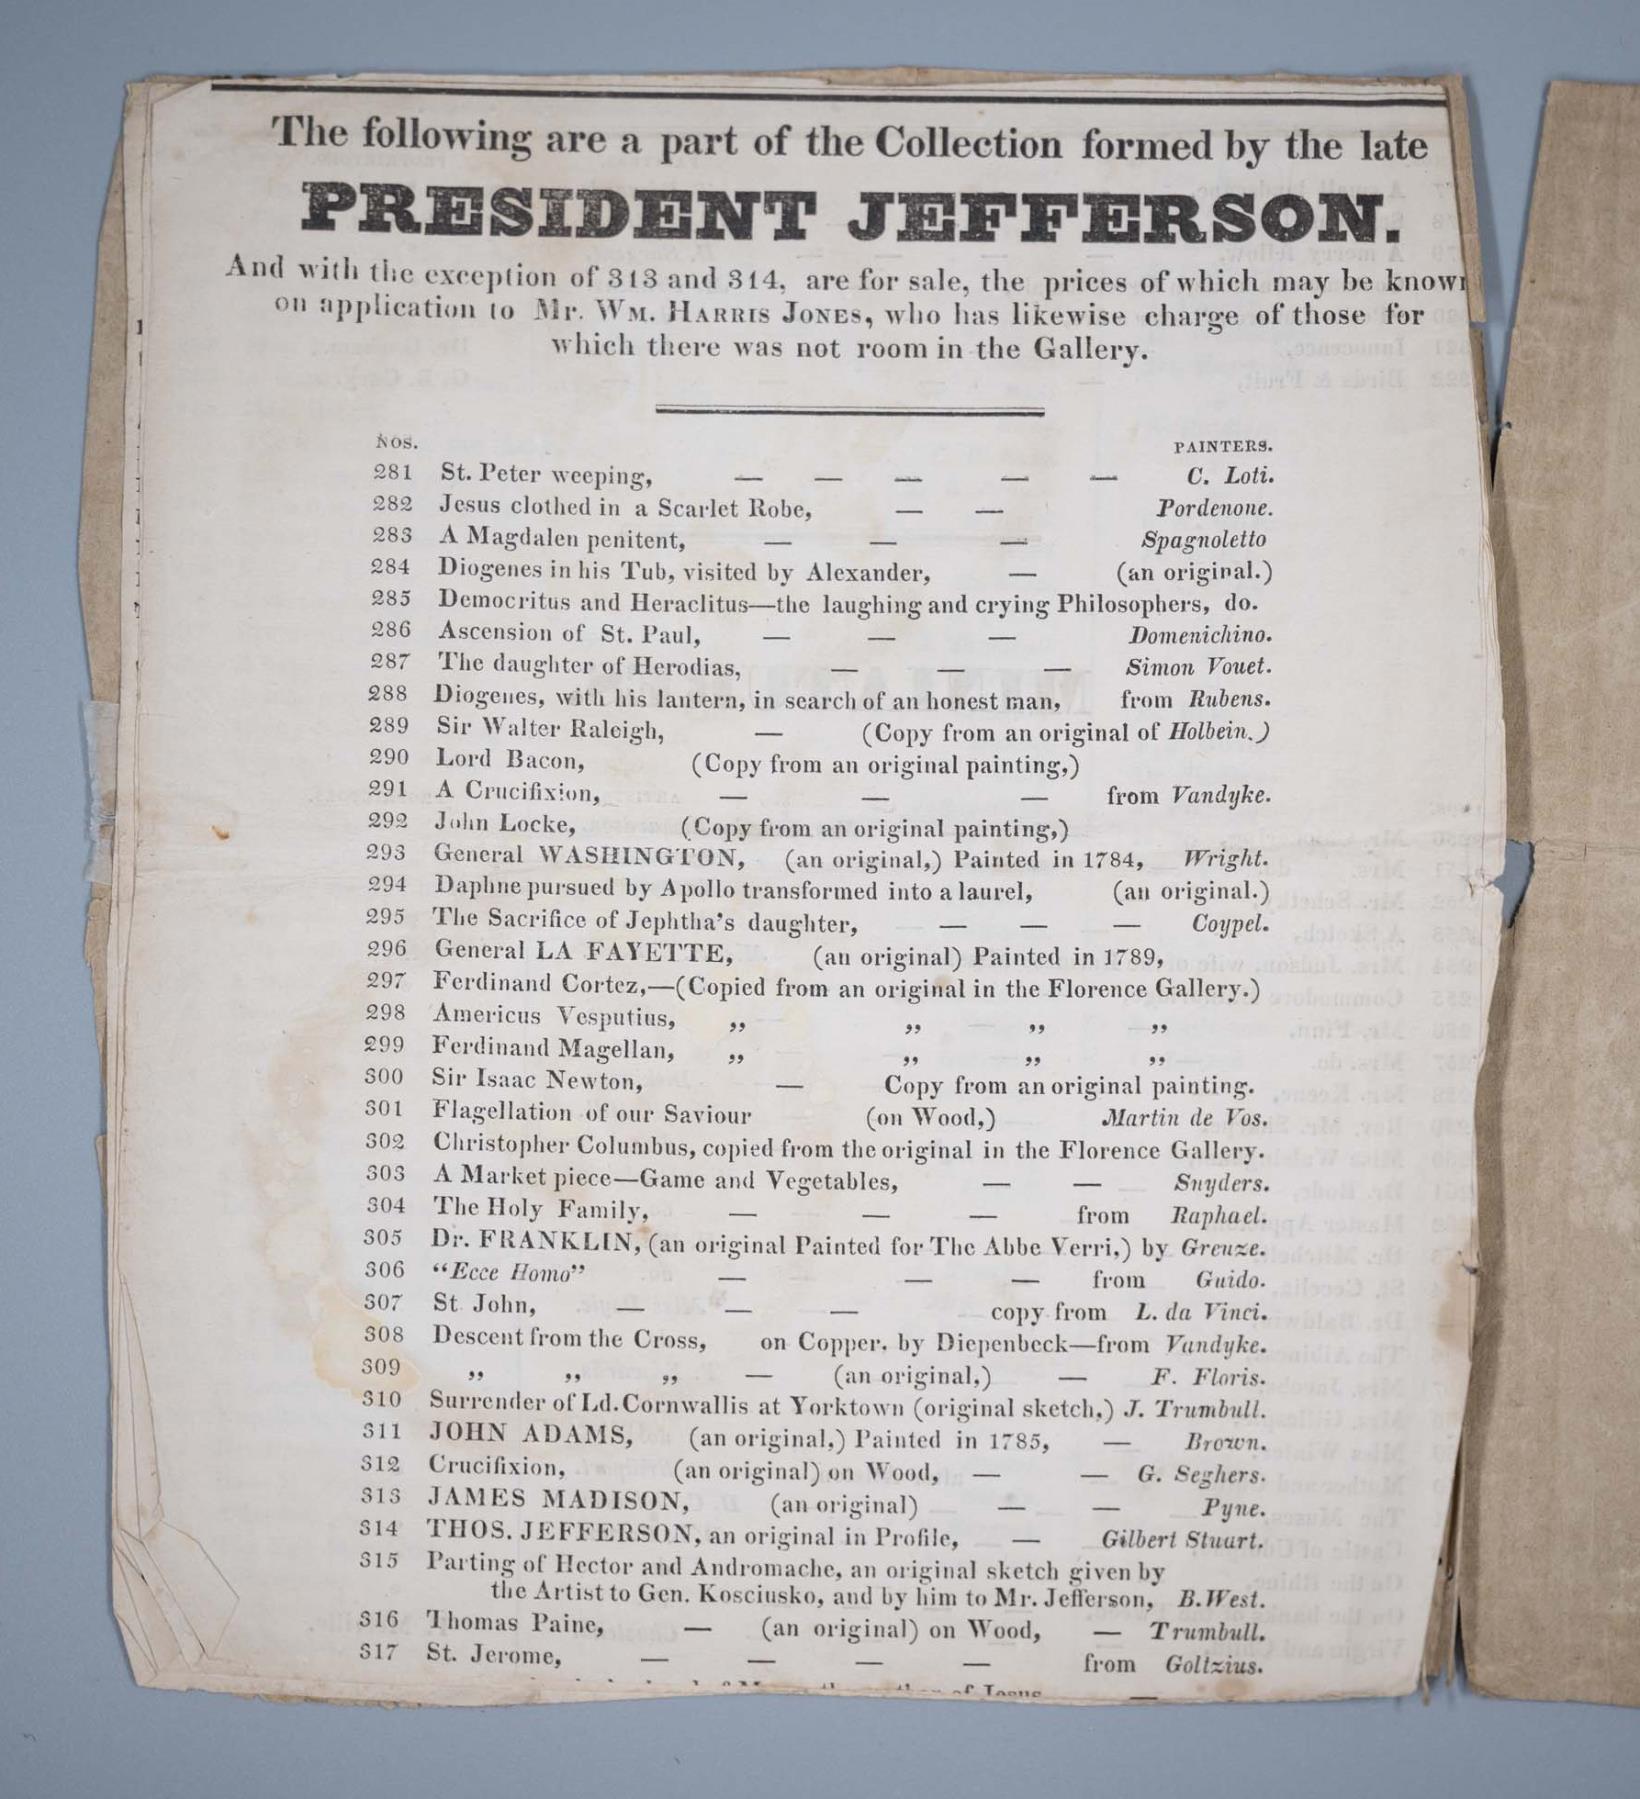 The following are a part of the Collection formed by the late
PRESIDENT JEFFERSON.
And with the exception of 313 and 314, are for sale, the prices of which may be known
on application to Mr. WM. HARRIS JONES, who has likewise charge of those for
which there was not room in the Gallery.
NOS. PAINTERS.
281 St. Peter weeping, — — — — — C. Loti.
282 Jesus clothed in a Scarlet Robe, — — Pordenone.
283 A Magdalen penitent, — — — Spagnoletto
284 Diogenes in his Tub, visited by Alexander, — (an original.)
285 Democritus and Heraclitus—the laughing and crying Philosophers, do.
286 Ascension of St. Paul, — — — Domenichino.
287 The daughter of Herodias, — — — Simon Vouet.
288 Diogenes, with his lantern, in search of an honest man, from Rubens.
289 Sir Walter Raleigh, — (Copy from an original of Holbein.)
290 Lord Bacon, (Copy from an original painting,)
291 A Crucifixion, — — — from Vandyke.
292 John Locke, (Copy from an original painting,)
293 General WASHINGTON, (an original,) Painted in 1784, Wright.
294 Daphne pursued by Apollo transformed into a laurel, (an original.)
295 The Sacrifice of Jephtha's daughter, — — — Coypel.
296 General LA FAYETTE, (an original) Painted in 1789,
297 Ferdinand Cortez,—(Copied from an original in the Florence Gallery.)
298 Americus Vesputius, „ „ „ „
299 Ferdinand Magellan, „ „ „ „
300 Sir Isaac Newton, — Copy from an original painting.
301 Flagellation of our Saviour (on Wood,) Martin de Vos.
302 Christopher Columbus, copied from the original in the Florence Gallery.
303 A Market piece—Game and Vegetables, — — Snyders.
304 The Holy Family, — — — from Raphael.
305 Dr. FRANKLIN, (an original Painted for The Abbe Verri,) by Greuze.
306 "Ecce Homo" — — — from Guido.
307 St John, — — — copy from L. da Vinci.
308 Descent from the Cross, on Copper. by Diepenbeck—from Vandyke.
309 „ „ „ — (an original,) — F. Floris.
310 Surrender of Ld. Cornwallis at Yorktown (original sketch,) J. Trumbull.
311 JOHN ADAMS, (an original,) Painted in 1785, — Brown.
312 Crucifixion, (an original) on Wood, — — G. Seghers.
313 JAMES MADISON, (an original) — — Pyne.
314 THOS. JEFFERSON, an original in Profile, — Gilbert Stuart.
315 Parting of Hector and Andromache, an original sketch given by
the Artist to Gen. Kosciusko, and by him to Mr. Jefferson, B. West.
316 Thomas Paine, — (an original) on Wood, — Trumbull.
317 St. Jerome, — — — — from Goltzius.
of Jesus